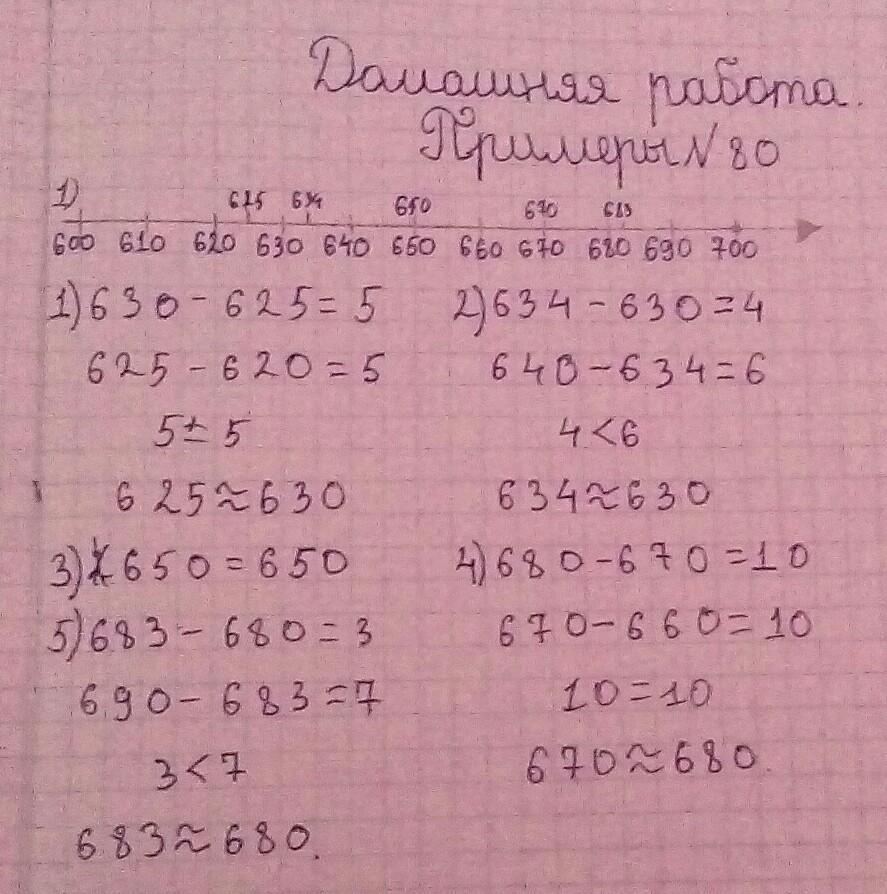 Домашняя работа.
Примеры № 80
1)
625 634 650 670 683
600 610 620 630 640 650 660 670 680 690 700
1) 630 - 625 = 5 2) 634 - 630 = 4
625 - 620 = 5 640 - 634 = 6
5 = 5 4 < 6
625 ≈ 630 634 ≈ 630
3) 650 = 650 4) 680 - 670 = 10
5) 683 - 680 = 3 670 - 660 = 10
690 - 683 = 7 10 = 10
3 < 7 670 ≈ 680.
683 ≈ 680.